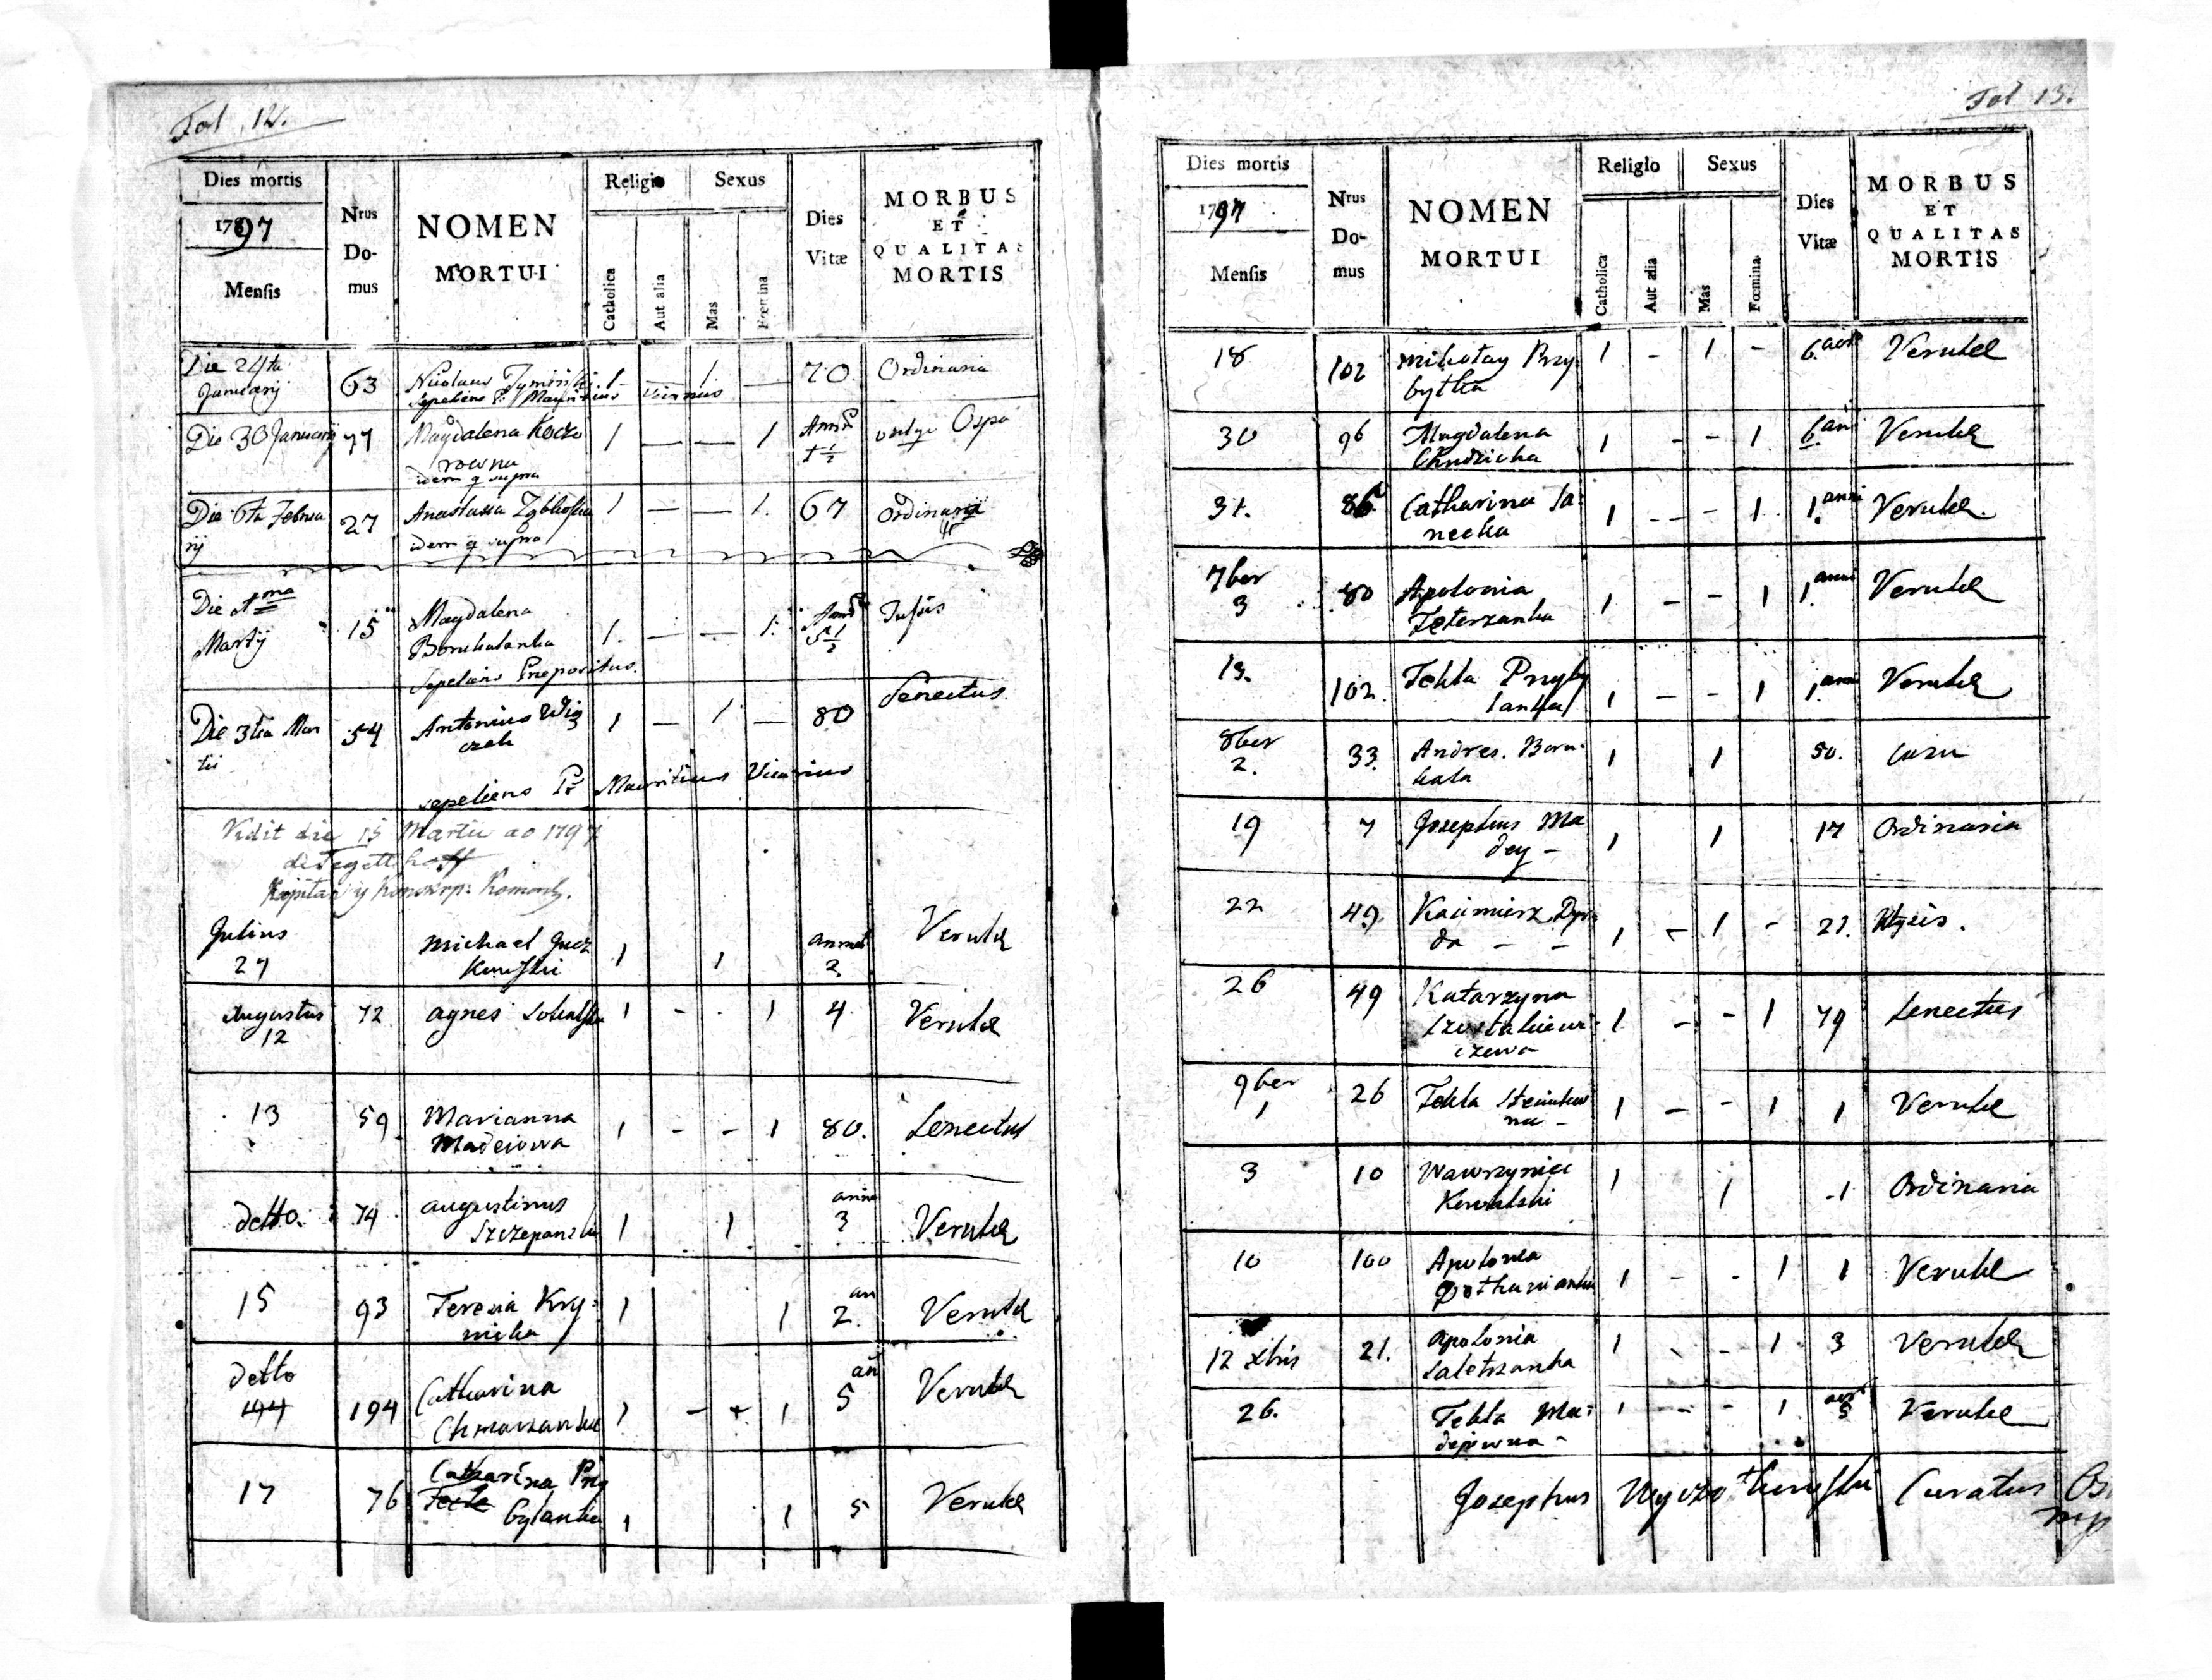 Fol. 12.
Dies mortis
1797
Mensis
Nrus
Do-
mus
NOMEN
MORTUI
Religio
Catholica
Aut alia
Sexus
Mas
Fœmina
Dies
Vitæ
MORBUS
ET
QUALITAS
MORTIS
Die 24ta
Januarij
63
Nicolaus Tyminski
Sepeliens Pr Mauritius Vicarius
1 — 1 —
70
Ordinaria
Die 30 Januarij
77
Magdalena Koczo
rowna
idem q supra
1 — — 1
Anni
1 1/2
vulgo Ospa
Die 6ta Februa
rij
27
Anastasia
idem q supra
1 — — 1.
67
Ordinaria
Die 1ma
Martij
15
Magdalena
Borukalanka
Sepeliens Prepositus.
1. — — 1.
5 1/2
Tussis
Die 3tia Mar
tii
54
Antonius Wię
czek
sepeliens Pr Mauritius Vicarius
1 — 1 —
80
Senectus.
Vidit die 15 Martii ao 1797
de Tegetthoff
Julius
27
Michael
1 1
2
Verukel
Augustus
12
72
Agnes
1 - - 1
4
Verukel
13
59
Marianna
Madeiowa
1 - - 1
80.
Senectus
detto.
74
Augustinus
Szczepanski
1 1
3
Verukel
15
93
Teresia Kry:
nicka
1 1
an
2.
Verukel
detto
194
194
Catharina
Chmarzanka
1 - - 1
an
5
Verukel
17
76
Catharina Przy
Tecla
bylanka
1 1
5
Verukel
Fol 13.
Dies mortis
1797
Mensis
Nrus
Do-
mus
NOMEN
MORTUI
Religio
Catholica
Aut alia
Sexus
Mas
Fœmina
Dies
Vitæ
MORBUS
ET
QUALITAS
MORTIS
18
102
Mikołay Przy
bytka
1 - 1 -
6.
Verukel
30
96
Magdalena
Chudzicka
1 - - 1
6.
Verukel
31.
86
Catharina Ja:
necka
1 - - - 1
1. anni
Verukel.
7ber
3
80
Apolonia
Zeterzanka
1 - - 1
1. anni
Verukel
13.
102.
Tekla Przyby
lanka
1 - - 1
1.
Verukel
8ber
2.
33.
Andres. Boru-
kala
1 1
50.
Casu
19
7
Josephus Ma
dey -
1 1
17
Ordinaria
22
49.
Kazimierz Dyr:
da - -
1 - 1 -
21.
26
49
Katarzyna
Szostakiewi-
czowa
1. - - 1
79
Senectus
9ber
1
26
Tekla
na -
1 - - 1
1
Verukel
3
10
Wawrzyniec
Kowalski
1 1
1
Ordinaria
10
100
Apolonia
1 - - 1
1
Verukel
12 Xbris
21.
Apolonia
Saletrzanka
1 - - 1
3
Verukel
26.
Tekla Ma:
dejowna -
1 - - 1
5
Verukel
Josephus Wyczołkowski Curatus
mp